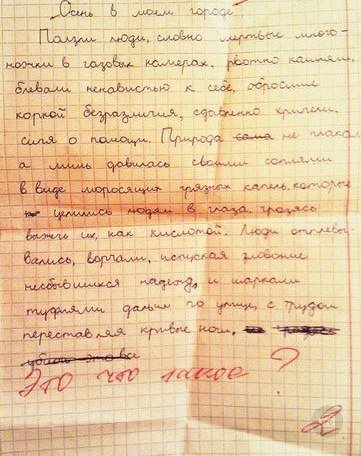 Осень в моем городе.
Ползли люди, словно мертвые много-
ножки в газовых камерах, рвотно кашляли,
блевали ненавистью к себе, обросшие
коркой безразличия, сдавленно хрипели,
о помощи. Природа сама не плакала,
а лишь давилась своими соплями
в виде моросящих грязных капель, которые
целились людям в глаза, грозясь
выжечь их, как кислотой. Люди отплевы-
вались, ворчали, испуская зловоние
несбывшихся надежд, и шаркали
туфлями дальше по улице, с трудом
переставляя кривые ноги.
убила это все
Это что такое?
2